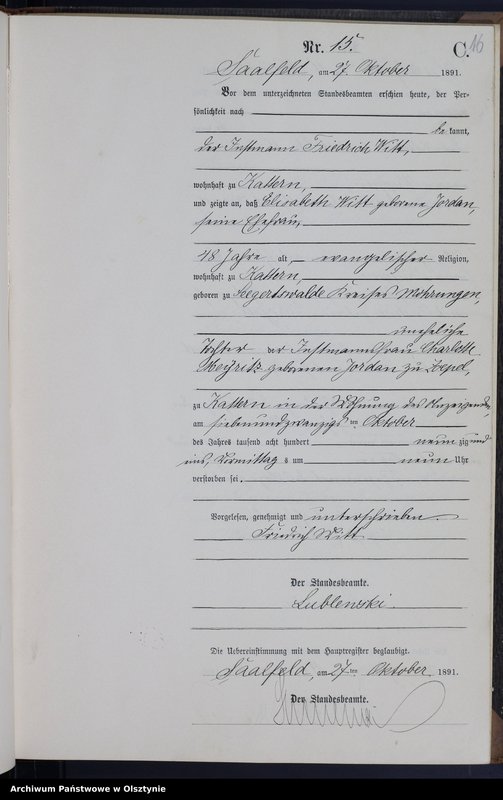 16
Nr. 15.
C.
Saalfeld, am 27. Oktober 1891.
Vor dem unterzeichneten Standesbeamten erschien heute, der Per-
sönlichkeit nach
be kannt,
der Instmann Friedrich Witt,
wohnhaft zu Kattern,
und zeigte an, daß Elisabeth Witt geborene Jordan,
seine Ehefrau,
48 Jahre alt, evangelischer Religion,
wohnhaft zu Kattern,
geboren zu Seegertswalde Kreises Mohrungen,
uneheliche
Tochter der Instmannsfrau Charlotte
geborenen Jordan zu
zu Kattern in der Wohnung des Anzeigenden,
am siebenundzwanzigsten Oktober
des Jahres tausend acht hundert neun zig und
eins, Vormittags um neun Uhr
verstorben sei.
Vorgelesen, genehmigt und unterschrieben.
Friedrich Witt
Der Standesbeamte.
Lublewski
Die Uebereinstimmung mit dem Hauptregister beglaubigt.
Saalfeld, am 27ten Oktober 1891.
Der Standesbeamte.
Archiwum Państwowe w Olsztynie